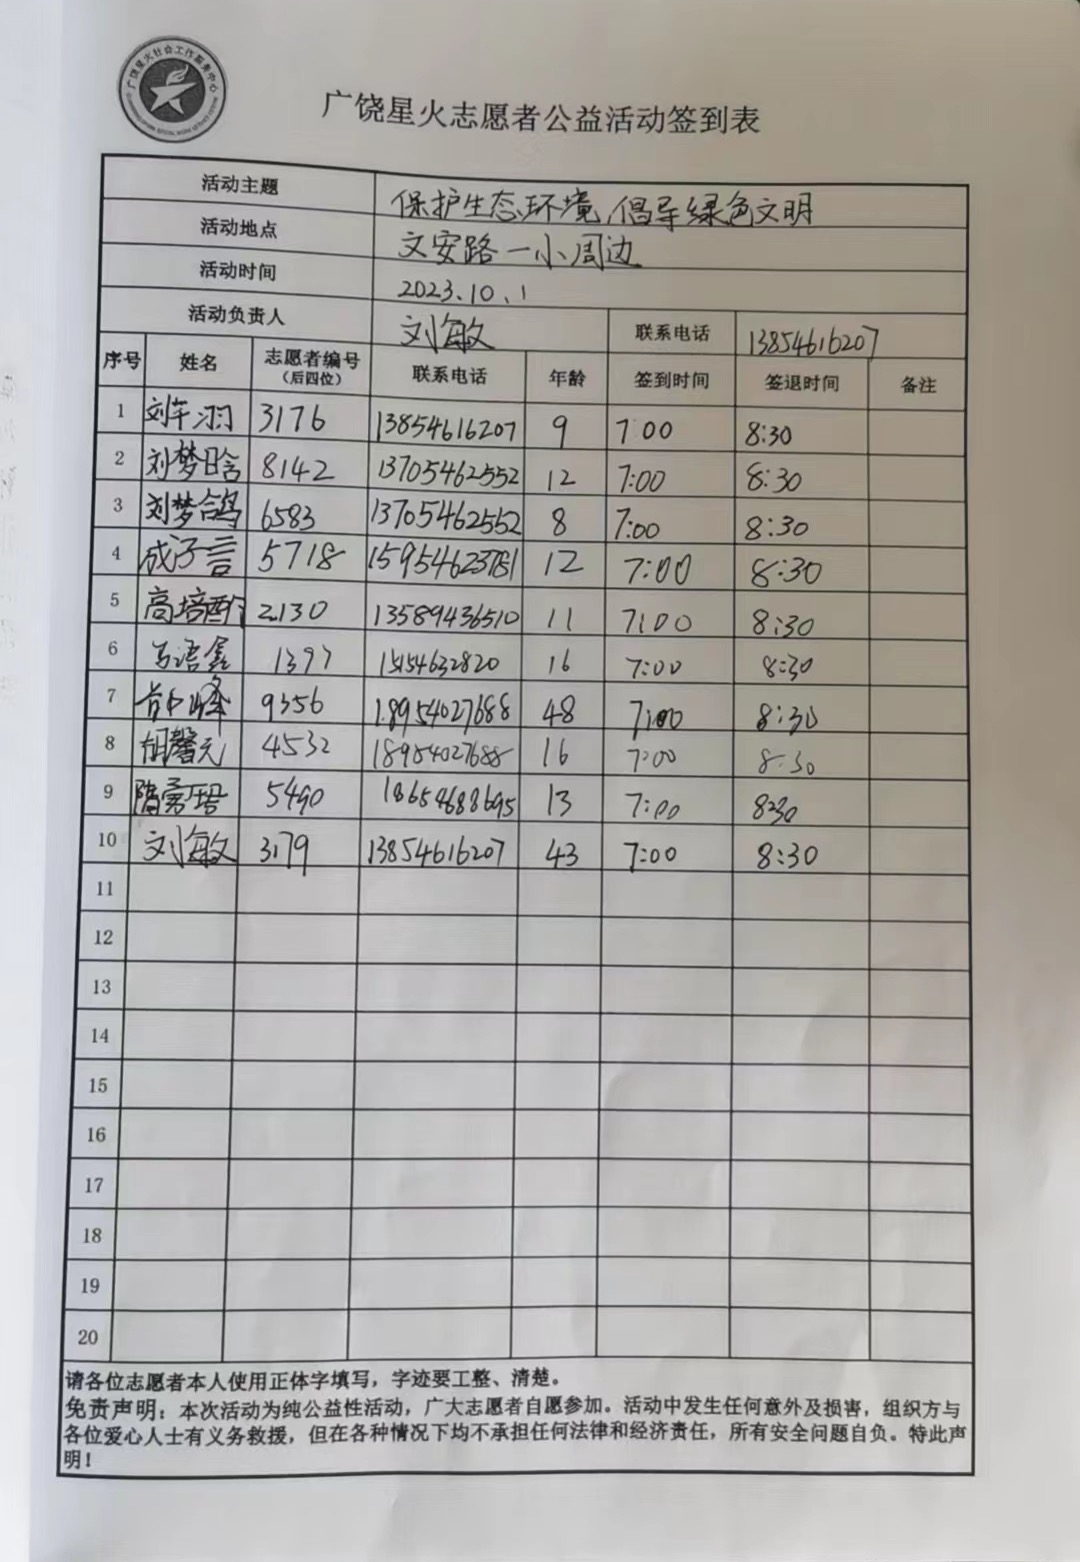 广饶星火社会工作服务中心
广饶星火志愿者公益活动签到表
活动主题 保护生态环境,倡导绿色文明
活动地点 文安路一小周边
活动时间 2023.10.1
活动负责人 刘敏 联系电话 13854616207
序号 姓名 志愿者编号(后四位) 联系电话 年龄 签到时间 签退时间 备注
1 刘羽 3176 13854616207 9 7:00 8:30
2 刘梦晗 8142 13705462552 12 7:00 8:30
3 刘梦鸽 6583 13705462552 8 7:00 8:30
4 成子言 5718 15954623781 12 7:00 8:30
5 高培 2130 13589436510 11 7:00 8:30
6 马语鑫 1397 15154632820 16 7:00 8:30
7 峰 9356 18954027688 48 7:00 8:30
8 胡馨元 4532 18954027688 16 7:00 8:30
9 隋 5490 18654688695 13 7:00 8:30
10 刘敏 3179 13854616207 43 7:00 8:30
11
12
13
14
15
16
17
18
19
20
请各位志愿者本人使用正体字填写，字迹要工整、清楚。
免责声明：本次活动为纯公益性活动，广大志愿者自愿参加。活动中发生任何意外及损害，组织方与
各位爱心人士有义务救援，但在各种情况下均不承担任何法律和经济责任，所有安全问题自负。特此声
明！